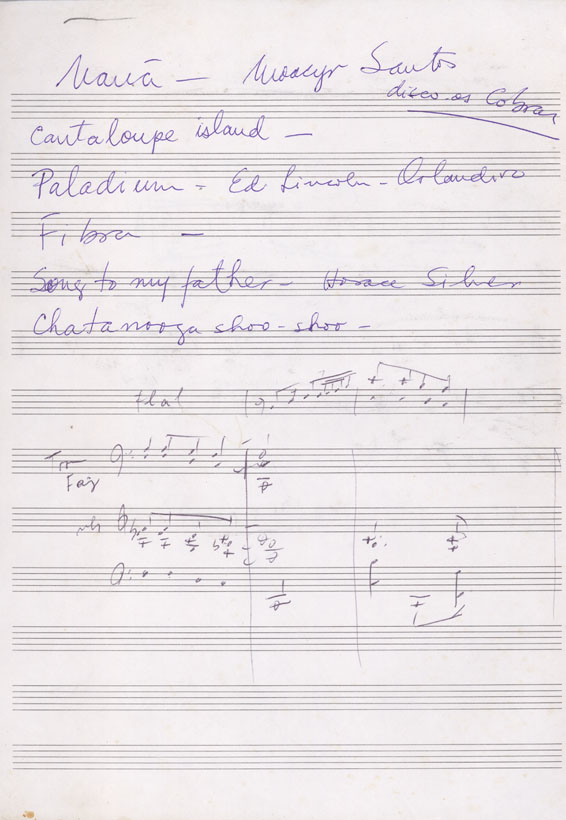 Nanã - Moacyr Santos
disco os Cobras
Cantaloupe island -
Paladium - Ed Lincoln - Orlandivo
Fibra -
Song to my father - Horace Silver
Chatanooga shoo-shoo -
Fag